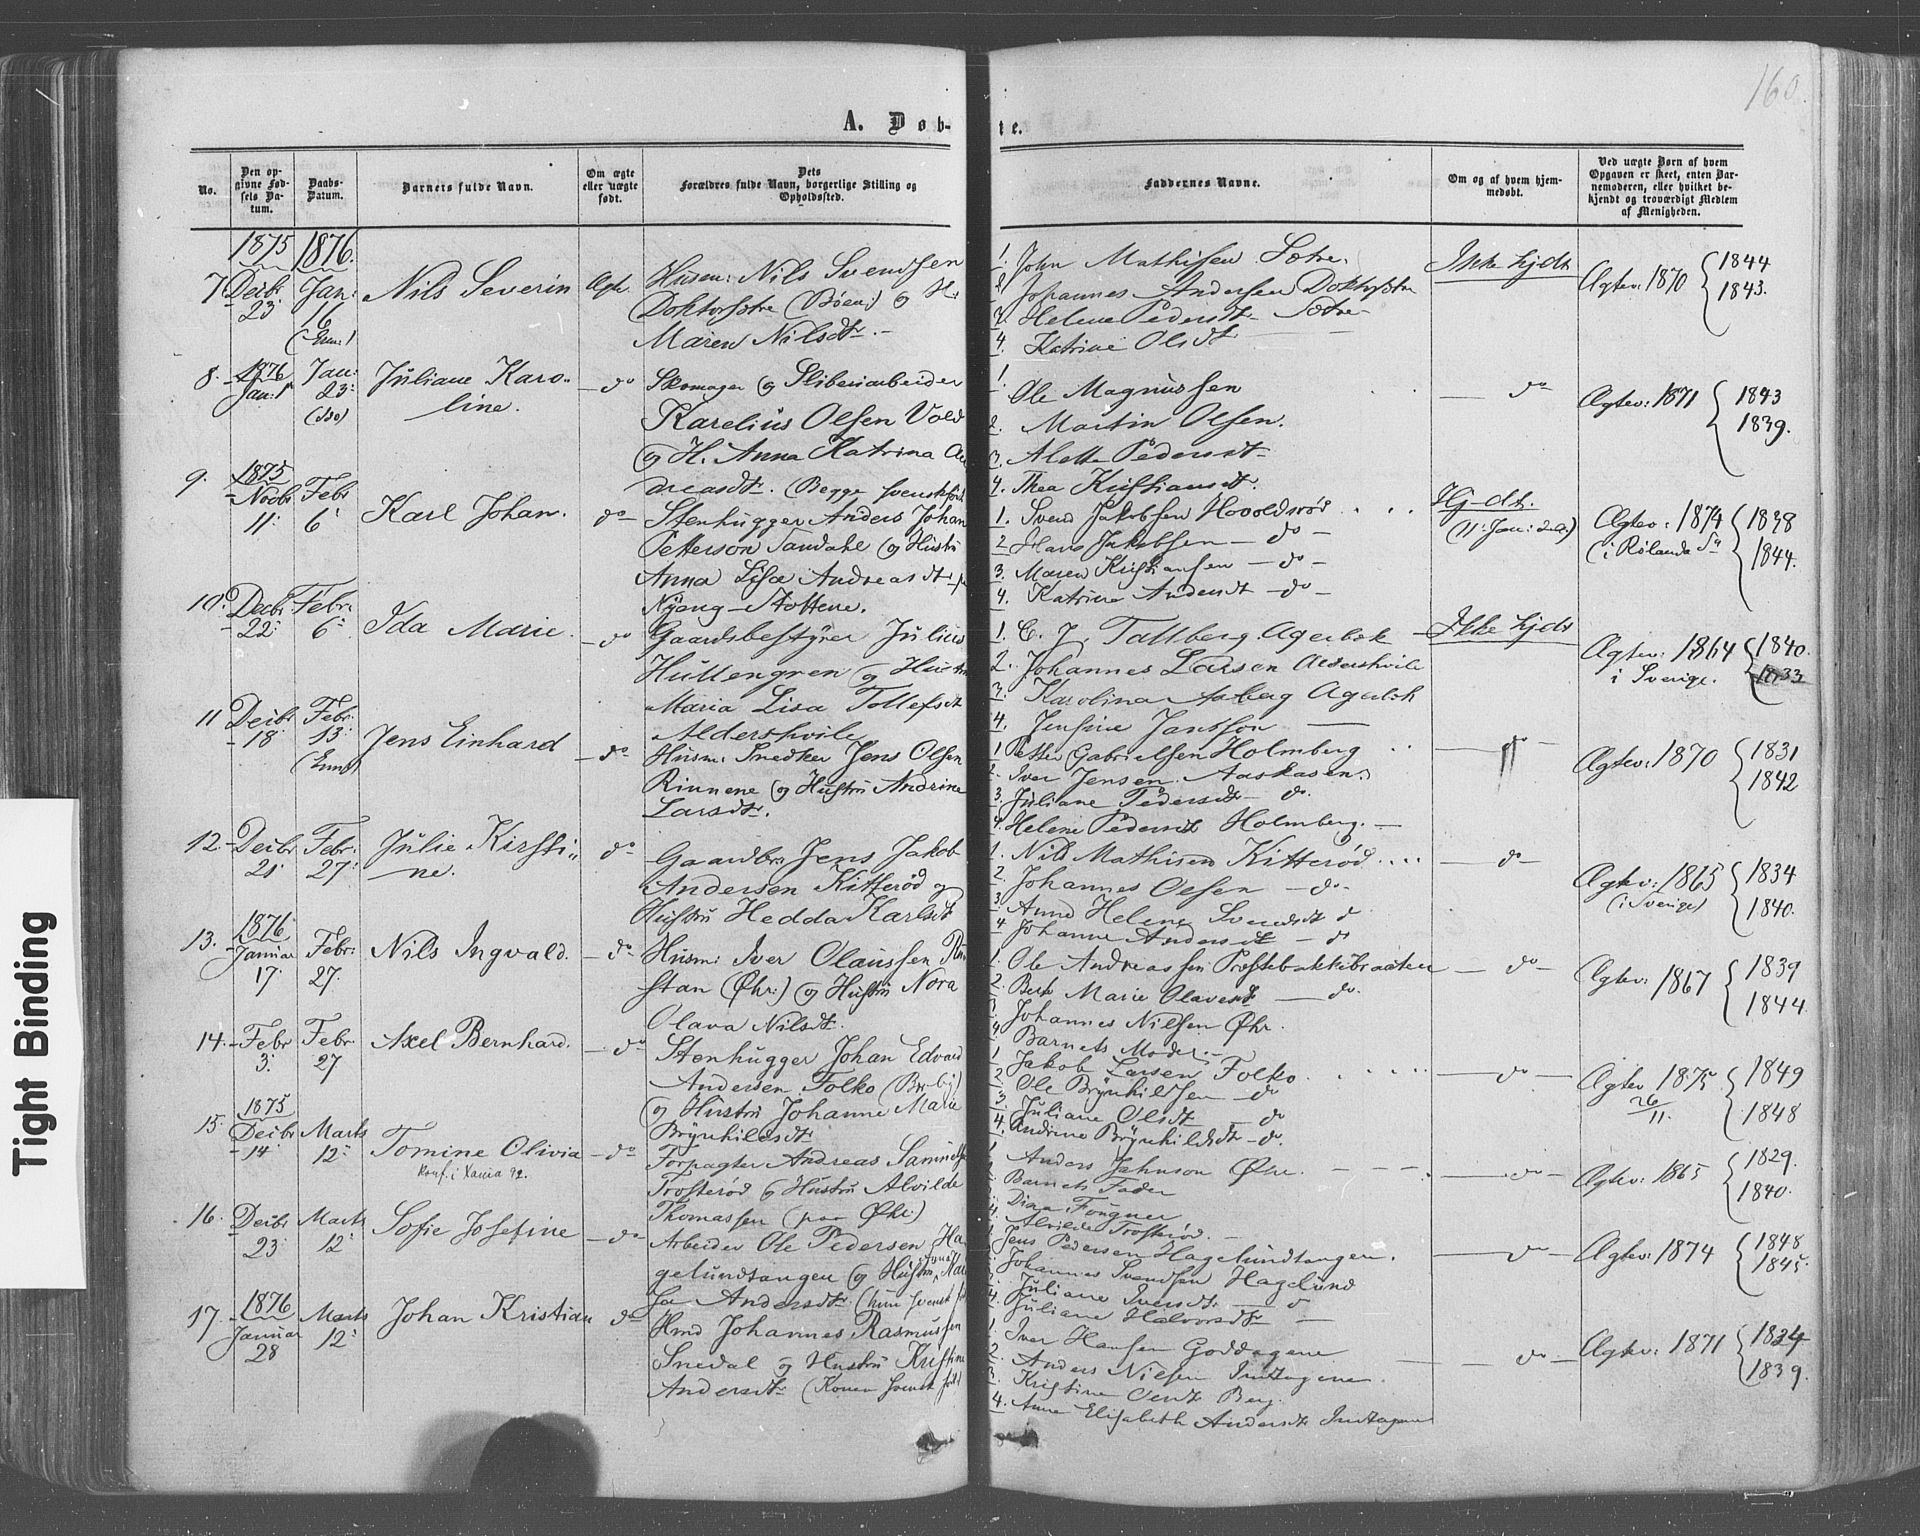 160
A. Døb-
te.
No.
Den op-
givne Fød-
sels Da-
tum.
Daabs-
Datum.
Barnets fulde Navn.
Om ægte
eller uægte
født.
Dets
Forældres fulde Navn, borgerlige Stilling og
Opholdssted.
Faddernes Navne.
Om og af hvem hjem-
medøbt.
Ved uægte Børn af hvem
Opgaven er skeet, enten Bar-
nemoderen, eller hvilket be-
kjendt og troværdigt Medlem
af Menigheden.
1875 1876.
7 Decbr 23 Jan: 16
Nils Severin
Ægte.
Husm: Nils Svendsen
Doktorsætre (Bøen:) og H.
Maren Nilsdtr.
1. John Mathisen Sætre.
2. Johannes Andersen Doktorsætre
3. Helene Pedersdtr Sætre
4. Katrine Olsdtr
Ikke hjdt
Ægtev: 1870 1844
1843.
8. 1876 Jan: 1 Jan: 23:
(do)
Juliane Karo-
line.
do
Skomager og Sliberiarbeider
Karelius Olsen Vold
og H. Anna Katrina An
dreasdtr. (Begge svenskfødt
1. Ole Magnussen
2. Martin Olsen.
3. Alette Pedersdt
4. Thea Kristiansdt.
do
Ægtev: 1871 1843
1839.
9. 1875 Novbr 11: Febr 6
Karl Johan.
do
Stenhugger Anders Johan
Petterson Tandahl og Hustru
Anna Lisa Andreasdtr
Nyeng-Stottene.
1. Svend Jakobsen Hovoldsrød
2. Hans Jakobsen do
3. Maren Kristiansen do
4. Katrine Andersdt do
Hj-dt.
Ægtev: 1874 1838
1844.
10. Decbr 22: Febr: 6
Ida Marie.
do
Gaardsbestyrer Julius
Hultengren og Hustru
Maria Lisa Tollefsdt
Aldershvile
1. C. J. Tallberg Agerbæk
2. Johannes Larsen Aldershvile
3. Karolina Asberg Agerbæk
4. Jensine Jansson
Ikke hjdt
Ægtev: 1864 1840.
i Sverige. 1833
11 Decbr 18 Febr. 13:
Jens Einhard
do
Husm: Snedker Jens Olsen
Rinnene og Hustru Andrine
Larsdtr.
1 Petter Gabrielsen Holmberg
2. Iver Jensen Aaskasen
3. Juliane Pedersdt do.
4. Helene Pedersdt Holmberg.
do
Ægtev: 1870 1831
1842
12. Decbr 21 Febr: 27:
Julie Kirsti-
ne.
do
Gaardbr: Jens Jakob
Andersen Kitterød og
Hustru Hedda Karlsdt
1. Nils Mathisen Kitterød
2. Johannes Olsen do
3. Anne Helene Svendsdt d
4 Johanne Andersdt d
do
Ægtev: 1865 1834
(i Sverige) 1840.
13. 1876 Januar 17. Febr: 27.
Nils Ingvald.
do
Husm: Iver Olaussen
stan (Øhr:) og Hustru Nora
Olava Nilsdt.
1. Ole Andreassen Præstebakkebraaten
2. Marie Olavesdt do
3 Johannes Nilsen Øhr.
4 Barnets Moder.
do
Ægtev: 1867 1839
1844.
14. Febr 3: Febr 27
Axel Bernhard.
do
Stenhugger Johan Edvard
Andersen Folko (Berby)
og Hustru Johanne Marie
Brynhildsdtr
1 Jakob Larsen Folko.
2 Ole Brynhildsen do
3. Juliane Olsdt do
4. Andrine Brynhildsdt do.
do
Ægtev 1875 1849
26/11. 1848
15. 1875 Decbr 14 Marts 12:
Tomine Olivia
Konf. i Xania 92.
do
Forpagter Andreas Samuelsen
Trosterød og Hustru Alvilde
Thomassen (paa Øhr:)
1 Anders Johnson Øhr.
2. Barnets Fader
3. Dina Fougner
4. Alvilde Trosterød.
do
Ægtev: 1865 1829.
1840.
16. Decbr 23 Marts 12:
Sofie Josefine
do
Arbeider Ole Pedersen Ha
gelundtangen og Hustru
Andersdtr. (hun svensk
1. Jens Pedersen Hagelundtangen.
Johannes Svendsen Hagelund
Juliane Iversdt d
4. Juliane Halvorsdt
do
Ægtev: 1874 1848
1845.
17. 1876 Januar 28 Marts 12:
Johan Kristian
do
Hmd Johannes Rasmussen
Snedal og Hustru Kristine
Andersdt (Konen svensk født
1 Iver Hansen Goddagene
2. Anders Nielsen
3. Kristine Berg.
4. Anne Elisabeth Andersdt
do
Ægtev: 1871 1834
1839.
Tight Binding